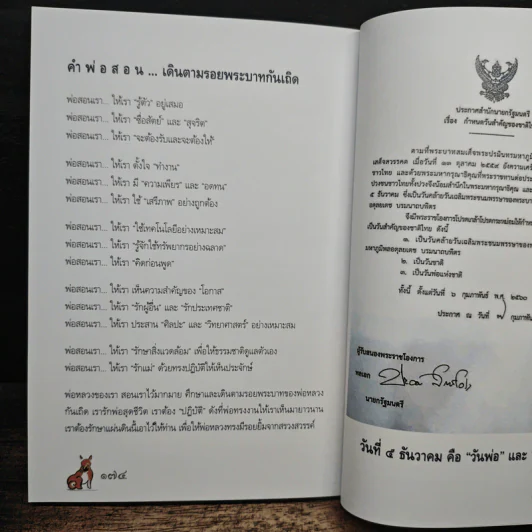 คำพ่อสอน ... เดินตามรอยพระบาทกันเถิด
พ่อสอนเรา... ให้เรา "รู้ตัว" อยู่เสมอ
พ่อสอนเรา... ให้เรา "ซื่อสัตย์" และ "สุจริต"
พ่อสอนเรา... ให้เรา "จะต้องรับและจะต้องให้"
พ่อสอนเรา... ให้เรา ตั้งใจ "ทำงาน"
พ่อสอนเรา... ให้เรา มี "ความเพียร" และ "อดทน"
พ่อสอนเรา... ให้เรา ใช้ "เสรีภาพ" อย่างถูกต้อง
พ่อสอนเรา... ให้เรา "ใช้เทคโนโลยีอย่างเหมาะสม"
พ่อสอนเรา... ให้เรา "รู้จักใช้ทรัพยากรอย่างฉลาด"
พ่อสอนเรา... ให้เรา "คิดก่อนพูด"
พ่อสอนเรา... ให้เรา เห็นความสำคัญของ "โอกาส"
พ่อสอนเรา... ให้เรา "รักผู้อื่น" และ "รักประเทศชาติ"
พ่อสอนเรา... ให้เรา ประสาน "ศิลปะ" และ "วิทยาศาสตร์" อย่างเหมาะสม
พ่อสอนเรา... ให้เรา "รักสิ่งแวดล้อม" เพื่อให้ธรรมชาติดูแลตัวเอง
พ่อสอนเรา... ให้เรา "รักแม่" ด้วยทรงปฏิบัติให้เห็นประจักษ์
พ่อหลวงของเรา สอนเราไว้มากมาย ศึกษาและเดินตามรอยพระบาทของพ่อหลวง
กันเถิด เรารักพ่อสุดชีวิต เราต้อง "ปฏิบัติ" ดังที่พ่อทรงงานให้เราเห็นมายาวนาน
เราต้องรักษาแผ่นดินนี้เอาไว้ให้ท่าน เพื่อให้พ่อหลวงทรงมีรอยยิ้มจากสรวงสวรรค์
๑๗๔
ประกาศสำนักนายกรัฐมนตรี
เรื่อง กำหนดวันสำคัญของชาติไ
ตามที่พระบาทสมเด็จพระปรมินทรมหาภูมิ
เสด็จสวรรคต เมื่อวันที่ ๑๓ ตุลาคม ๒๕๕๙
ชาวไทย และด้วยพระมหากรุณาธิคุณที่ทรงพระราชทานต่อประ
ประชาชนชาวไทยทั้งปวงจึงน้อมสำนึกในพระมหากรุณาธิคุณ และ
๕ ธันวาคม ซึ่งเป็นวันคล้ายวันเฉลิมพระชนมพรรษาของพระบา
อดุลยเดช บรมนาถบพิตร
จึงมีพระราชโองการโปรดเกล้าโปรดกระหม่อมให้กำห
เป็นวันสำคัญของชาติไทย ดังนี้
๑. เป็นวันคล้ายวันเฉลิมพระชนมพรรษาของพ
มหาภูมิพลอดุลยเดช บรมนาถบพิตร
๒. เป็นวันชาติ
๓. เป็นวันพ่อแห่งชาติ
ทั้งนี้ ตั้งแต่วันที่ ๖ กุมภาพันธ์ พ.ศ. ๒๕๖๐
ประกาศ ณ วันที่ ๗ กุมภาพั
ผู้รับสนองพระราชโองการ
พลเอก
นายกรัฐมนตรี
วันที่ ๕ ธันวาคม คือ "วันพ่อ" และ